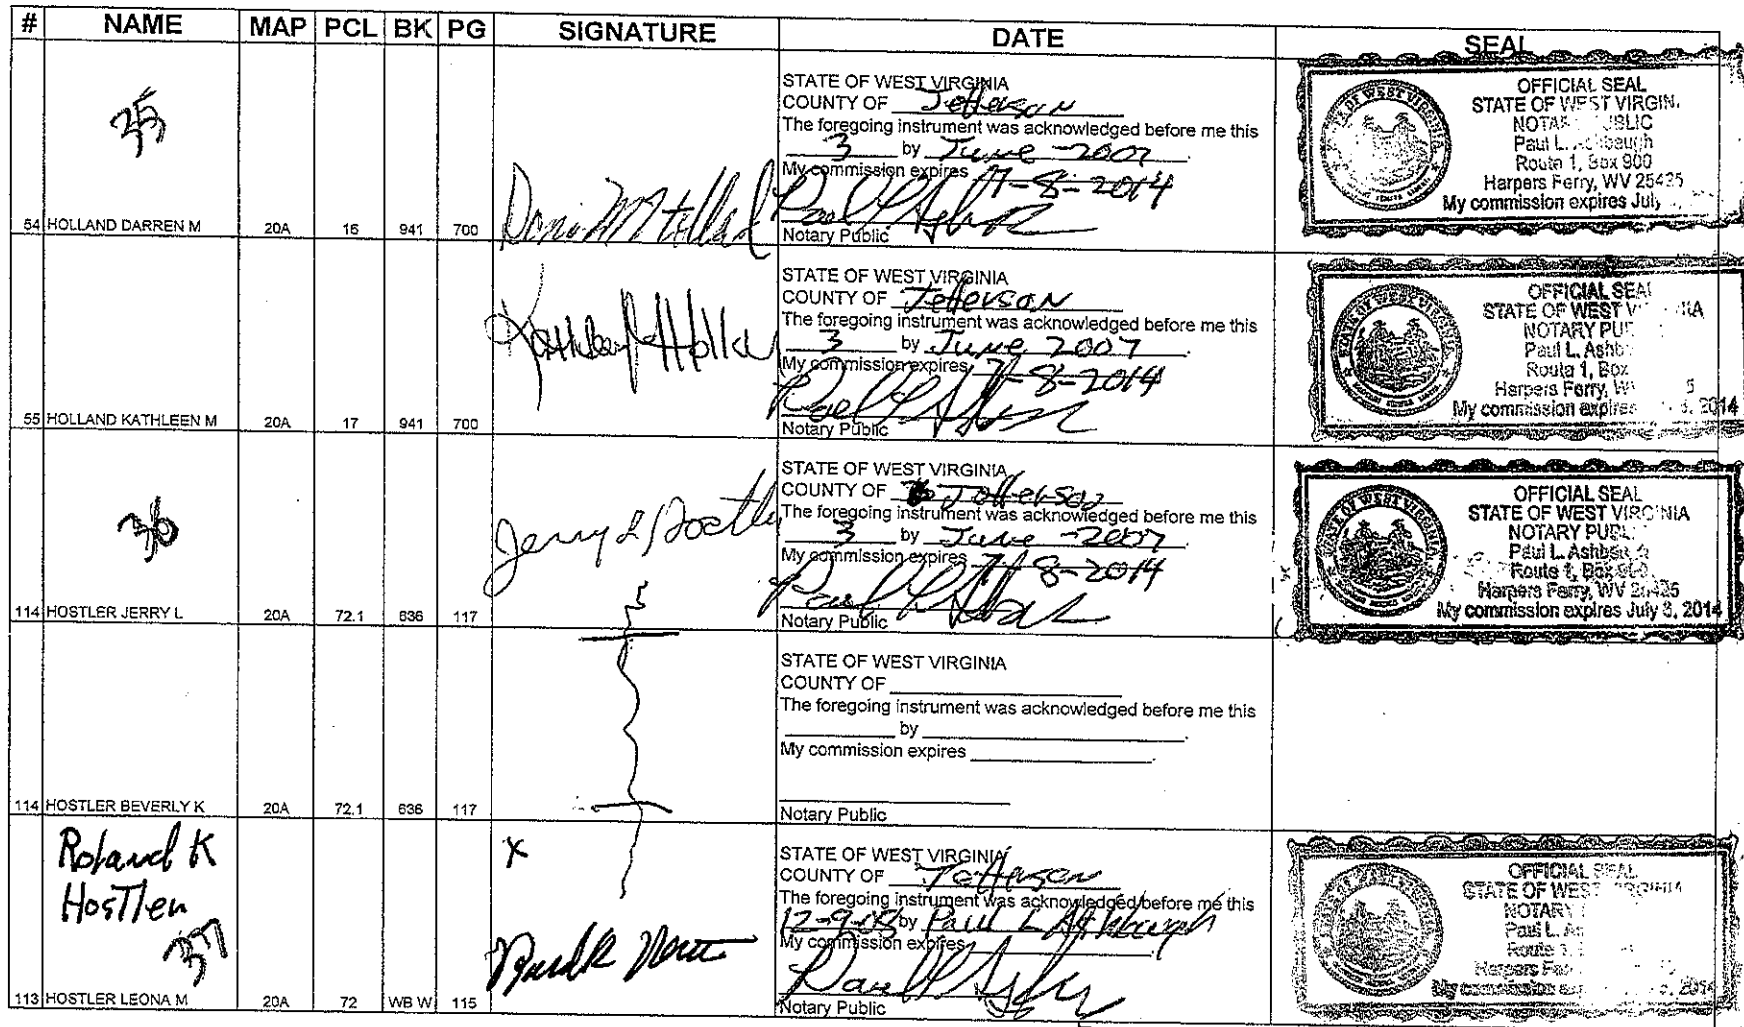 # NAME MAP PCL BK PG SIGNATURE DATE SEAL
35
54 HOLLAND DARREN M 20A 16 941 700
STATE OF WEST VIRGINIA
COUNTY OF Jefferson
The foregoing instrument was acknowledged before me this
3 by June -2007
My commission expires 7-8-2014
Notary Public
OFFICIAL SEAL
STATE OF WEST VIRGIN
Paul L.
Route 1, Box 900
Harpers Ferry, WV 25425
My commission expires July
55 HOLLAND KATHLEEN M 20A 17 941 700
STATE OF WEST VIRGINIA
COUNTY OF Jefferson
The foregoing instrument was acknowledged before me this
3 by June 2007
My commission expires 7-8-2014
Notary Public
OFFICIAL SEAL
STATE OF WEST
NOTARY
Paul L.
Route 1, Box
Harpers Ferry,
My commission expires 2014
36
114 HOSTLER JERRY L 20A 72.1 636 117
Jerry L Hostler
STATE OF WEST VIRGINIA
COUNTY OF Jefferson
The foregoing instrument was acknowledged before me this
3 by June -2007
My commission expires 7-8-2014
Notary Public
OFFICIAL SEAL
STATE OF WEST VIRGINIA
NOTARY
Paul L. Ashbaugh
Route 1, Box 900
Harpers Ferry, WV 25425
My commission expires July 8, 2014
114 HOSTLER BEVERLY K 20A 72.1 636 117
STATE OF WEST VIRGINIA
COUNTY OF
The foregoing instrument was acknowledged before me this
by
My commission expires
Notary Public
Roland K
Hostler
37
113 HOSTLER LEONA M 20A 72 WB W 115
x
STATE OF WEST VIRGINIA
COUNTY OF Jefferson
The foregoing instrument was acknowledged before me this
12-9-08 by Paul L Ashbaugh
My commission expires
Notary Public
OFFICIAL SEAL
STATE OF WEST
NOTARY
Paul L.
Route 1,
Harpers
My commission 2014